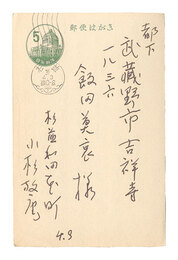 郵便はがき
5
都下
武蔵野市吉祥寺
一八三六
飯田美哀様
杉並和田本町
小杉放庵
4.3